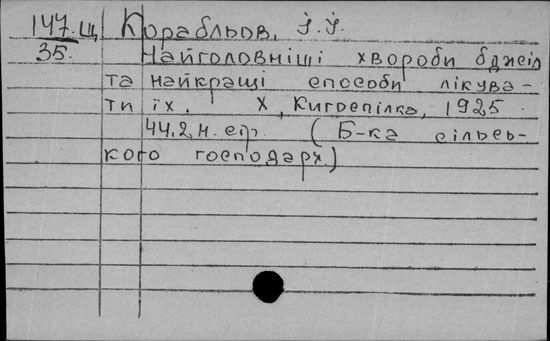 147.Щ Корабльов, І. І.
35. Найголовніші хвороби бджіл
та найкращі способи лікува-
ти їх. Х, Книгоспілка, 1925
44,2,н. стр. (Б-ка сільсь-
кого господаря.)